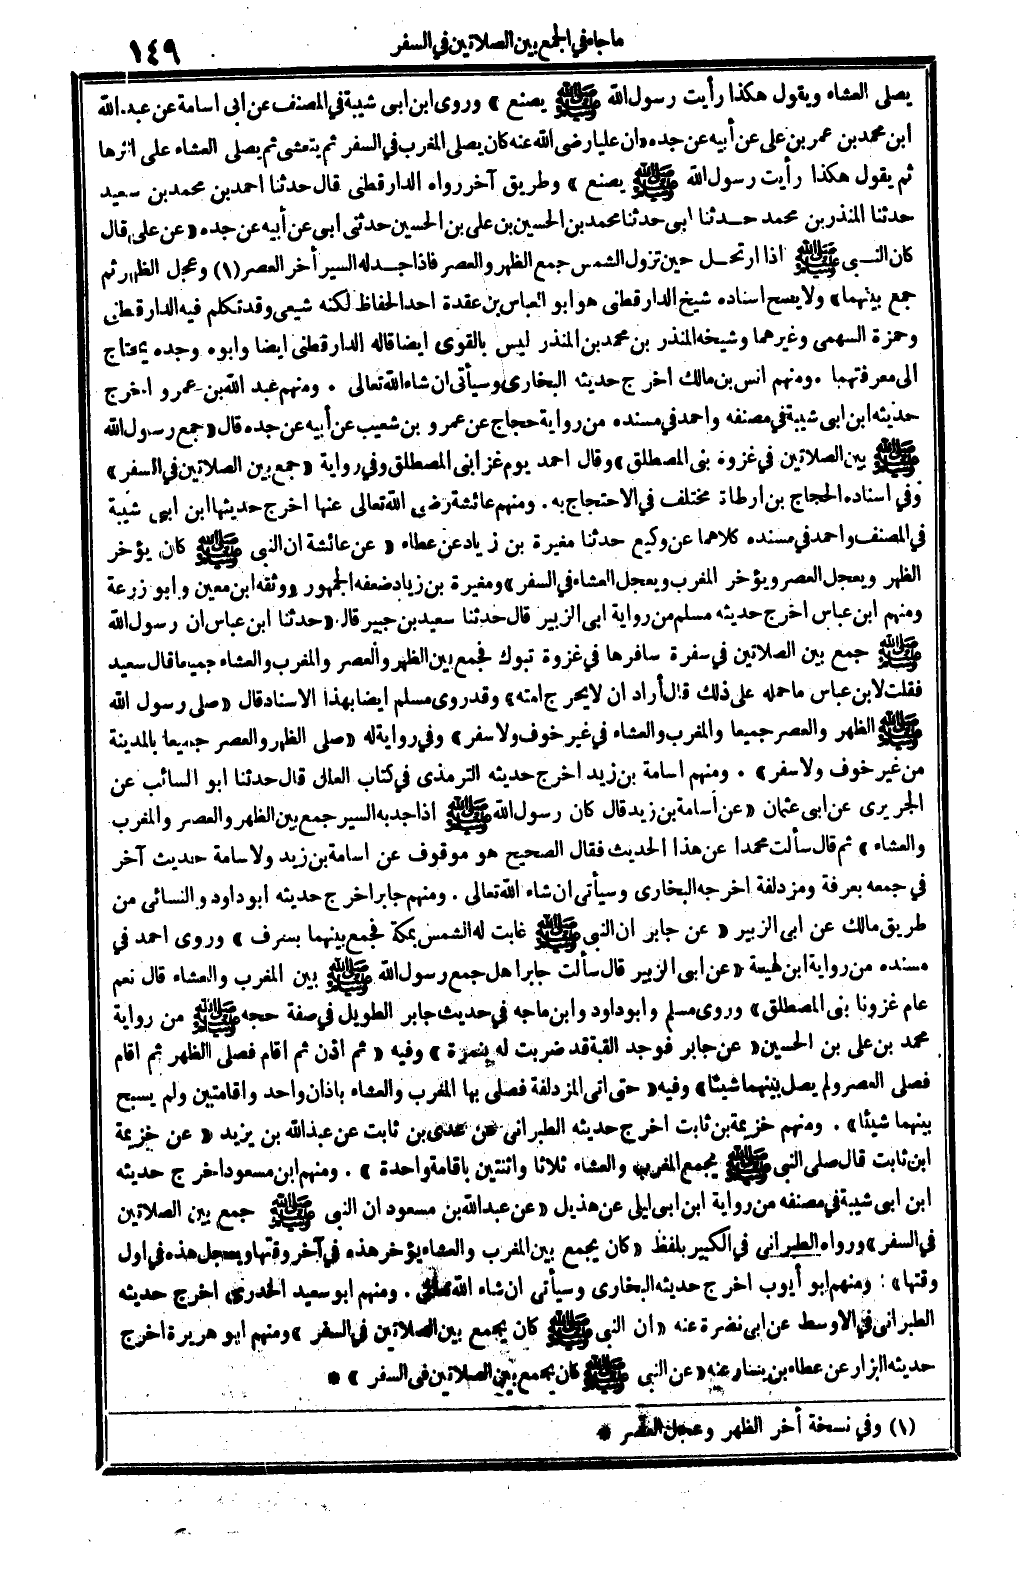 ما جاء في الجمع بين الصلاتين في السفر
١٤٩
يصلى العشاء ويقول هكذا رأيت رسول الله ﷺ يصنع » وروى ابن ابى شيبة في المصنف عن ابى اسامة عن عبد الله
ابن محمد بن عمر بن على عن أبيه عن جده «ان عليا رضى الله عنه كان يصلى المغرب في السفر ثم يتعشى ثم يصلى العشاء على اثرها
ثم يقول هكذا رأيت رسول الله ﷺ يصنع » وطريق آخر رواه الدارقطنى قال حدثنا احمد بن محمد بن سعيد
حدثنا المنذر بن محمد حدثنا ابى حدثنا محمد بن الحسين بن على بن الحسين حدثنى ابى عن أبيه عن جده « عن على قال
كان النبى ﷺ اذا ارتحل حين تزول الشمس جمع الظهر والعصر فاذا جد له السير أخر العصر (١) وعجل الظهر ثم
جمع بينهما» ولا يصح اسناده شيخ الدارقطنى هو ابو العباس بن عقدة احد الحفاظ لكنه شيعى وقد تكلم فيه الدارقطنى
وحمزة السهمى وغيرهما وشيخه المنذر بن محمد بن المنذر ليس بالقوى ايضا قاله الدارقطنى ايضا وابوه وجده يحتاج
الى معرفتهما . ومنهم انس بن مالك اخرج حديثه البخارى وسيأتى ان شاء الله تعالى . ومنهم عبد الله بن عمرو اخرج
حديثه ابن ابى شيبة في مصنفه واحمد في مسنده من رواية حجاج عن عمرو بن شعيب عن أبيه عن جده قال «جمع رسول الله
ﷺ بين الصلاتين في غزوة بنى المصطلق» وقال احمد يوم غزا بنى المصطلق وفي رواية « جمع بين الصلاتين في السفر »
وفي اسناده الحجاج بن ارطاة مختلف في الاحتجاج به . ومنهم عائشة رضى الله تعالى عنها اخرج حديثها ابن ابى شيبة
في المصنف واحمد في مسنده كلاهما عن وكيع حدثنا مغيرة بن زياد عن عطاء « عن عائشة ان النبى ﷺ كان يؤخر
الظهر ويعجل العصر ويؤخر المغرب ويعجل العشاء في السفر» ومغيرة بن زياد ضعفه الجمهور ووثقه ابن معين وابو زرعة
ومنهم ابن عباس اخرج حديثه مسلم من رواية ابى الزبير قال حدثنا سعيد بن جبير قال «حدثنا ابن عباس ان رسول الله
ﷺ جمع بين الصلاتين في سفرة سافرها في غزوة تبوك فجمع بين الظهر والعصر والمغرب والعشاء جميعا قال سعيد
فقلت لابن عباس ما حمله على ذلك قال أراد ان لا يحرج امته» وقد روى مسلم ايضا بهذا الاسناد قال « صلى رسول الله
ﷺ الظهر والعصر جميعا والمغرب والعشاء في غير خوف ولا سفر» وفي رواية له « صلى الظهر والعصر جميعا بالمدينة
من غير خوف ولا سفر» . ومنهم اسامة بن زيد اخرج حديثه الترمذى في كتاب العلل قال حدثنا ابو السائب عن
الجريرى عن ابى عثمان « عن أسامة بن زيد قال كان رسول الله ﷺ اذا جد به السير جمع بين الظهر والعصر والمغرب
والعشاء » ثم قال سألت محمدا عن هذا الحديث فقال الصحيح هو موقوف عن اسامة بن زيد ولاسامة حديث آخر
في جمعه بعرفة ومزدلفة اخرجه البخارى وسيأتى ان شاء الله تعالى . ومنهم جابر اخرج حديثه ابو داود والنسائى من
طريق مالك عن ابى الزبير « عن جابر ان النبى ﷺ غابت له الشمس بمكة فجمع بينهما بسرف » وروى احمد في
مسنده من رواية ابن لهيعة « عن ابى الزبير قال سألت جابرا هل جمع رسول الله ﷺ بين المغرب والعشاء قال نعم
عام غزونا بنى المصطلق» وروى مسلم وابو داود وابن ماجه في حديث جابر الطويل في صفة حجه ﷺ من رواية
محمد بن على بن الحسين « عن جابر فوجد القبة قد ضربت له بنمرة » وفيه « ثم اذن ثم اقام فصلى الظهر ثم اقام
فصلى العصر ولم يصل بينهما شيئا» وفيه « حتى اتى المزدلفة فصلى بها المغرب والعشاء باذان واحد واقامتين ولم يسبح
بينهما شيئا» . ومنهم خزيمة بن ثابت اخرج حديثه الطبرانى عن عدى بن ثابت عن عبد الله بن يزيد « عن خزيمة
ابن ثابت قال صلى النبى ﷺ بجمع المغرب والعشاء ثلاثا واثنتين باقامة واحدة » . ومنهم ابن مسعود اخرج حديثه
ابن ابى شيبة في مصنفه من رواية ابن ابى ليلى عن هذيل « عن عبد الله بن مسعود ان النبى ﷺ جمع بين الصلاتين
في السفر» ورواه الطبرانى في الكبير بلفظ « كان يجمع بين المغرب والعشاء يؤخر هذه في آخر وقتها ويعجل هذه في اول
وقتها» : ومنهم ابو أيوب اخرج حديثه البخارى وسيأتى ان شاء الله تعالى . ومنهم ابو سعيد الخدرى اخرج حديثه
الطبرانى في الاوسط عن ابى نضرة عنه « ان النبى ﷺ كان يجمع بين الصلاتين في السفر » ومنهم ابو هريرة اخرج
حديثه البزار عن عطاء بن يسار عنه « عن النبى ﷺ كان يجمع بين الصلاتين في السفر » *
(١) وفي نسخة أخر الظهر وعجل العصر *